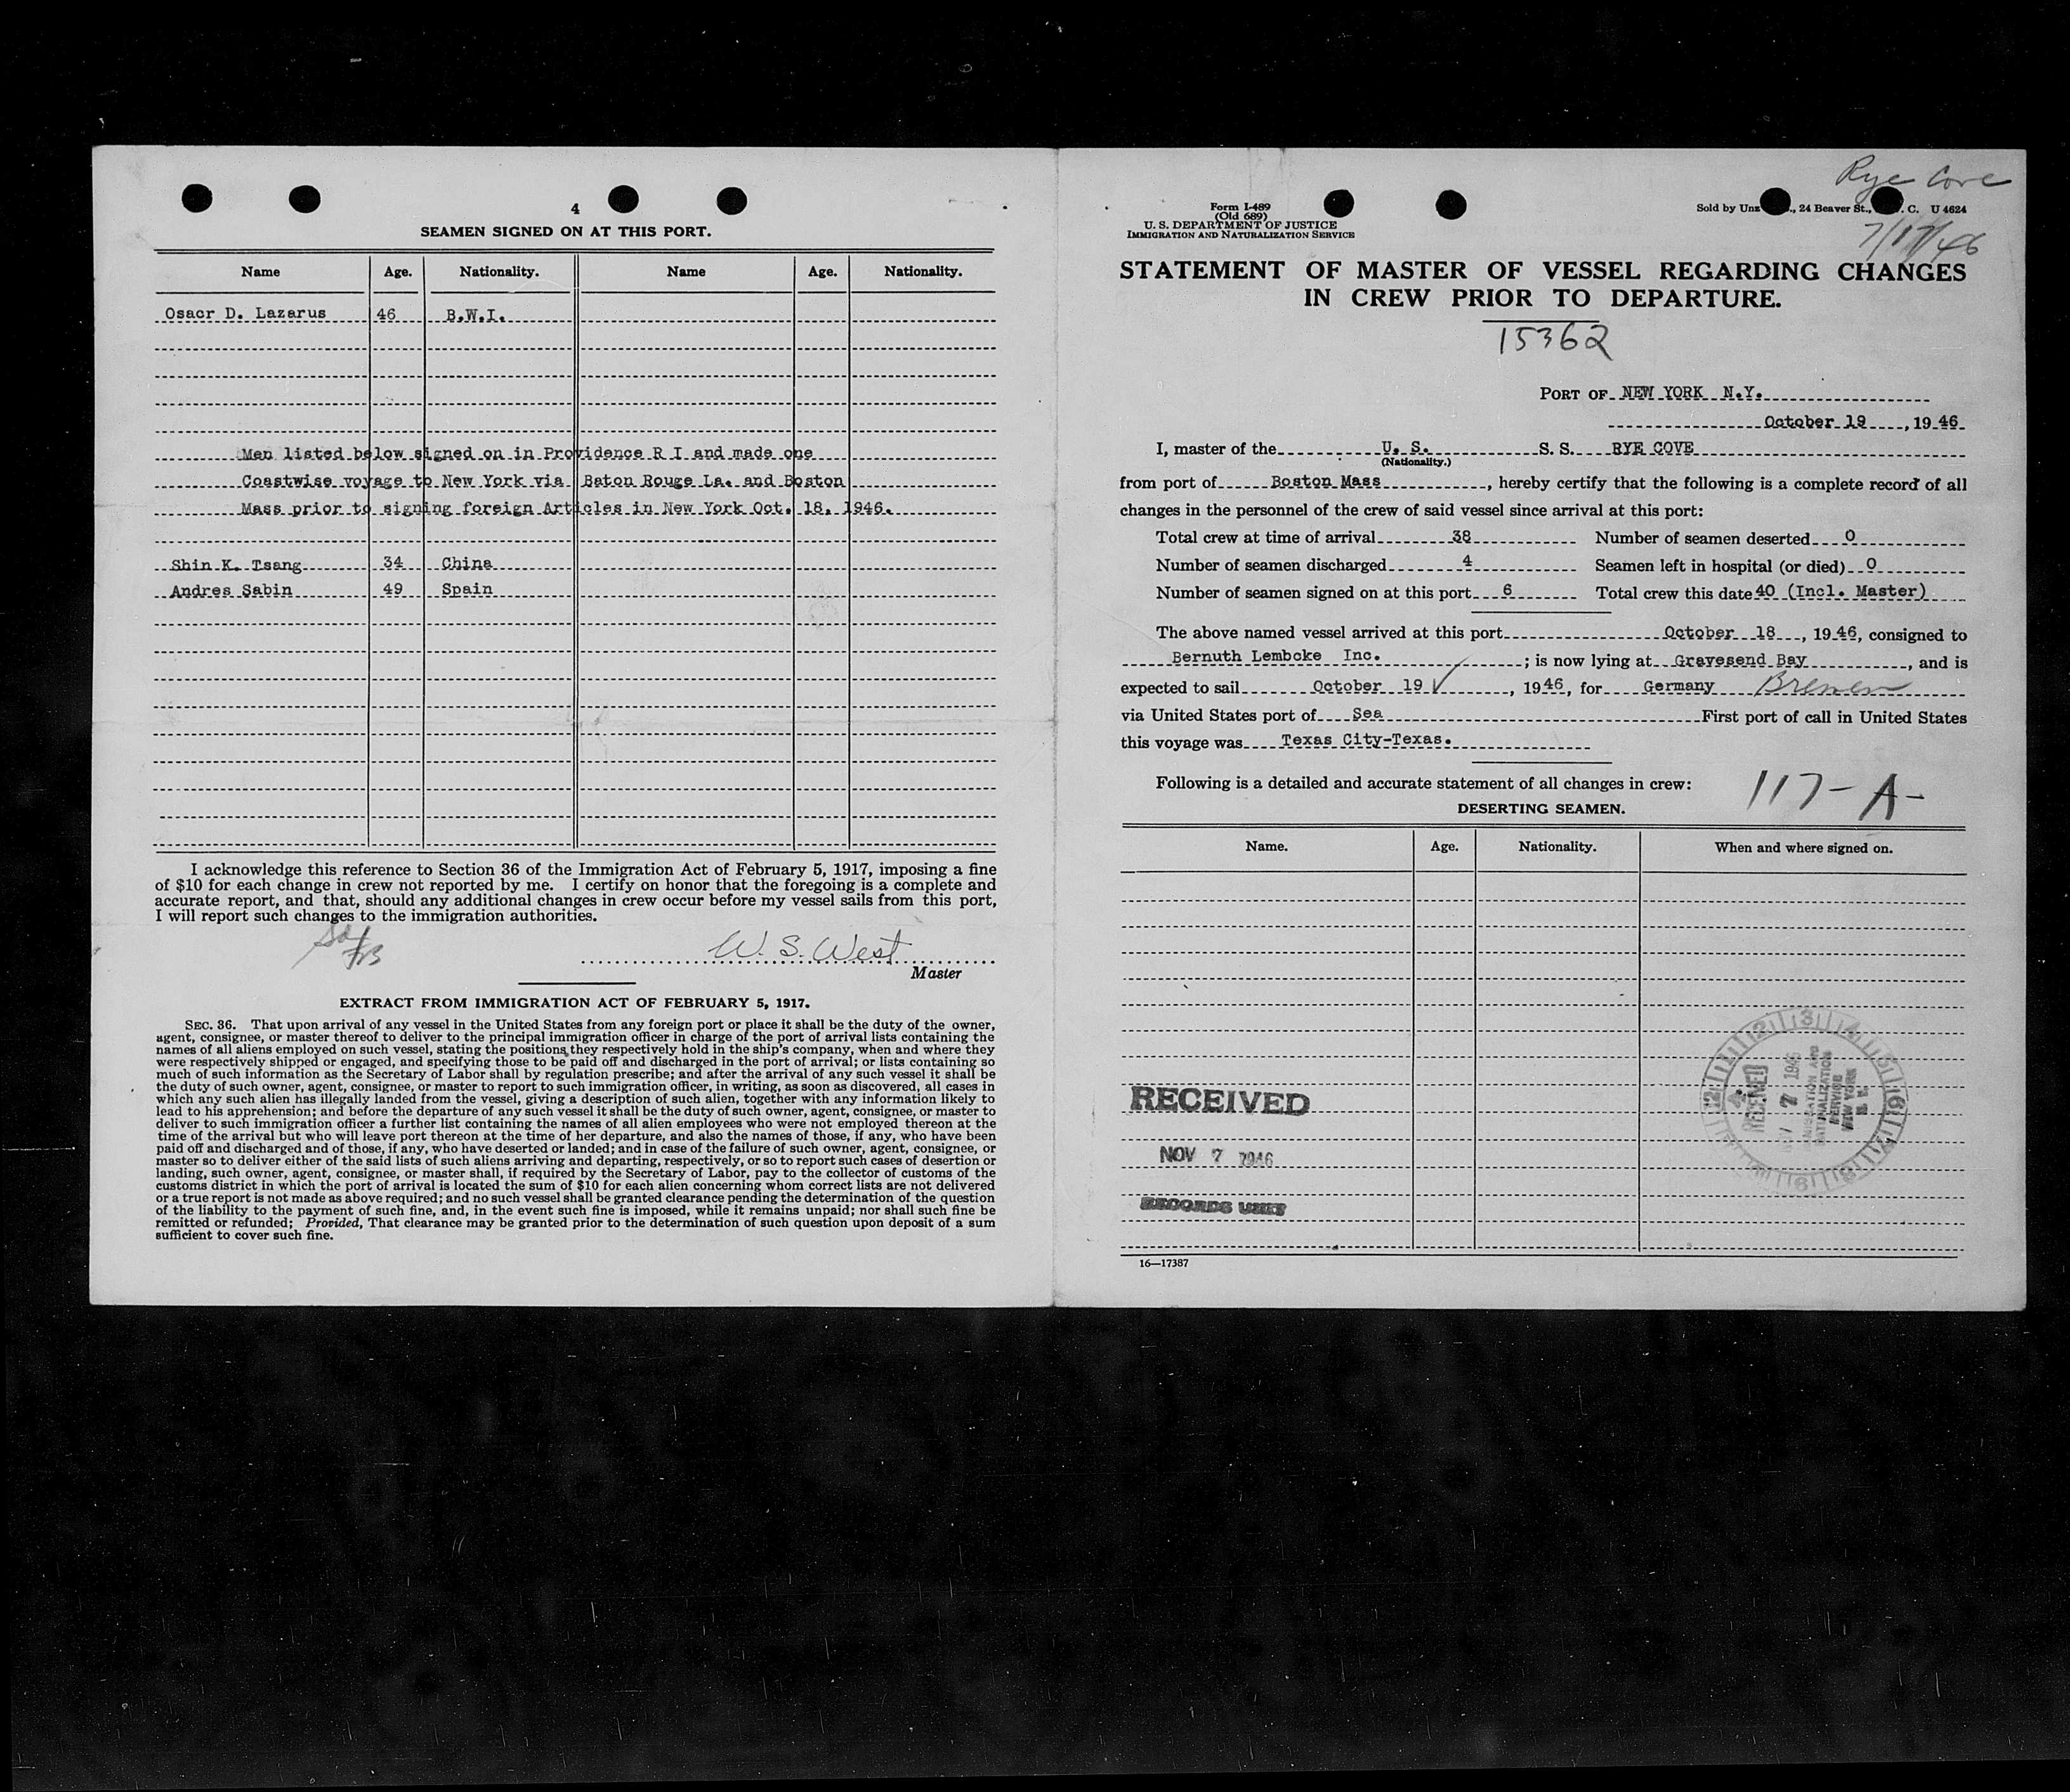 4
SEAMEN SIGNED ON AT THIS PORT.
Name Age. Nationality. Name Age. Nationality.
Osacr D. Lazarus 46 B.W.I.
Men listed below signed on in Providence R I and made one
Coastwise voyage to New York via Baton Rouge La. and Boston
Mass prior to signing foreign Articles in New York Oct. 18, 1946.
Shin K. Tsang 34 China
Andres Sabin 49 Spain
I acknowledge this reference to Section 36 of the Immigration Act of February 5, 1917, imposing a fine
of $10 for each change in crew not reported by me. I certify on honor that the foregoing is a complete and
accurate report, and that, should any additional changes in crew occur before my vessel sails from this port,
I will report such changes to the immigration authorities.
W. S. West
Master
EXTRACT FROM IMMIGRATION ACT OF FEBRUARY 5, 1917.
SEC. 36. That upon arrival of any vessel in the United States from any foreign port or place it shall be the duty of the owner,
agent, consignee, or master thereof to deliver to the principal immigration officer in charge of the port of arrival lists containing the
names of all aliens employed on such vessel, stating the positions they respectively hold in the ship's company, when and where they
were respectively shipped or engaged, and specifying those to be paid off and discharged in the port of arrival; or lists containing so
much of such information as the Secretary of Labor shall by regulation prescribe; and after the arrival of any such vessel it shall be
the duty of such owner, agent, consignee, or master to report to such immigration officer, in writing, as soon as discovered, all cases in
which any such alien has illegally landed from the vessel, giving a description of such alien, together with any information likely to
lead to his apprehension; and before the departure of any such vessel it shall be the duty of such owner, agent, consignee, or master to
deliver to such immigration officer a further list containing the names of all alien employees who were not employed thereon at the
time of the arrival but who will leave port thereon at the time of her departure, and also the names of those, if any, who have been
paid off and discharged and of those, if any, who have deserted or landed; and in case of the failure of such owner, agent, consignee, or
master so to deliver either of the said lists of such aliens arriving and departing, respectively, or so to report such cases of desertion or
landing, such owner, agent, consignee, or master shall, if required by the Secretary of Labor, pay to the collector of customs of the
customs district in which the port of arrival is located the sum of $10 for each alien concerning whom correct lists are not delivered
or a true report is not made as above required; and no such vessel shall be granted clearance pending the determination of the question
of the liability to the payment of such fine, and, in the event such fine is imposed, while it remains unpaid; nor shall such fine be
remitted or refunded; Provided, That clearance may be granted prior to the determination of such question upon deposit of a sum
sufficient to cover such fine.
Rye Cove
7/17/46
Form I-489
(Old 689)
U. S. DEPARTMENT OF JUSTICE
IMMIGRATION AND NATURALIZATION SERVICE
Sold by Unz ., 24 Beaver St., . C. U 4624
STATEMENT OF MASTER OF VESSEL REGARDING CHANGES
IN CREW PRIOR TO DEPARTURE.
15362
PORT OF NEW YORK N.Y.
October 19, 1946
I, master of the U. S. S. S. RYE COVE
(Nationality.)
from port of Boston Mass, hereby certify that the following is a complete record of all
changes in the personnel of the crew of said vessel since arrival at this port:
Total crew at time of arrival 38 Number of seamen deserted 0
Number of seamen discharged 4 Seamen left in hospital (or died) 0
Number of seamen signed on at this port 6 Total crew this date 40 (Incl. Master)
The above named vessel arrived at this port October 18, 1946, consigned to
Bernuth Lembcke Inc.; is now lying at Gravesend Bay, and is
expected to sail October 19, 1946, for Germany Bremen
via United States port of Sea First port of call in United States
this voyage was Texas City-Texas.
Following is a detailed and accurate statement of all changes in crew:
117-A-
DESERTING SEAMEN.
Name. Age. Nationality. When and where signed on.
RECEIVED
NOV 7 1946
RECORDS UNIT
RECEIVED
7 1946
IMMIGRATION AND
NATURALIZATION
SERVICE
NEW YORK
N. Y.
16—17387